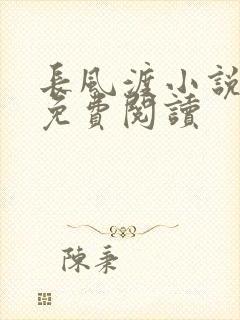 長風渡小說
免費閱讀
陳秉